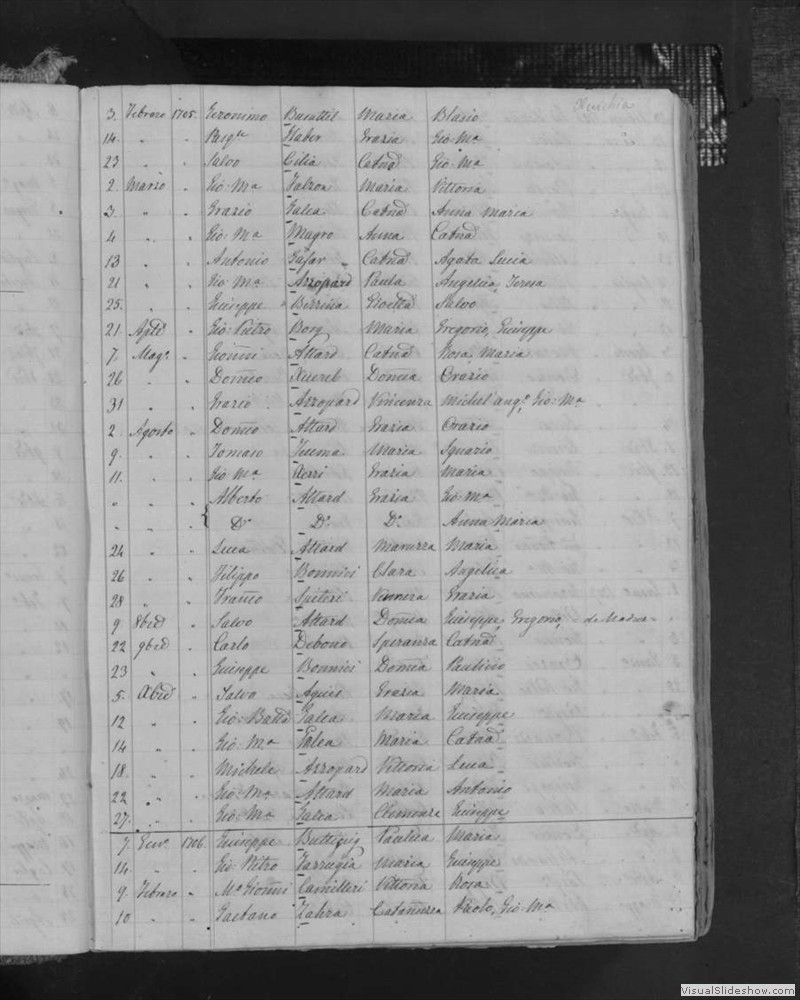 3. Febraro 1705. Geronimo Busuttil Maria Blasio
14. " " Pasq.le Xaber Grazia Gio: Ma
23 " " Salvo Cilia Catna Gio: Ma
2. Marzo " Gio: Ma Falzon Maria Vittoria
3. " " Grazio Galea Catna Anna Maria
4 " " Gio: Ma Mugro Anna Catna
13 " " Antonio Catna Agata Lucia
21 " " Gio: Ma Azzopard Paula Angelica, Teresa
25. " " Giuseppe Salvo
21 Aple " Gio: Pietro Borg Maria Gregorio, Giuseppe
7. Mago " Gionni Attard Catna Rosa, Maria
26 " " Domco Xuereb Domca Orazio
31 " " Grazio Azzopard Vincenza Michel ang.o Gio: Ma
2 Agosto " Domco Attard Grazia Orazio
9. " " Tomaso Maria
11. " " Gio: Ma Xerri Grazia Maria
" " " Alberto Attard Grazia Gio: Ma
" " " Do Do Do Anna Maria
24 " " Luca Attard Maruzza Maria
26 " " Filippo Bonnici Clara Angelica
28 " " Franco Spiteri Grazia
9 8bre " Salvo Attard Domca Giuseppe, Gregorio,
22 9bre " Carlo Debono Speranza Catna
23 " " Giuseppe Bonnici Domca Paulino
5. Xbre " Salvo Agius Grazia Maria
12 " " Gio: Batta Galea Maria Giuseppe
14 " " Gio: Ma Galea Maria Catna
18. " " Michele Azzopard Vittoria Luca
22 " " Gio: Ma Attard Maria Antonio
27. " " Gio: Ma Galea Clemenza Giuseppe
7. Genro 1706. Giuseppe Buttigieg Paulica Maria
14. " " Gio: Pietro Farrugia Maria Giuseppe
9. Febraro " Mo Gionni Camilleri Vittoria Rosa
10 " " Gaetano Zahra Catarinuzza Paolo, Gio: Ma
VisualSlideshow.com